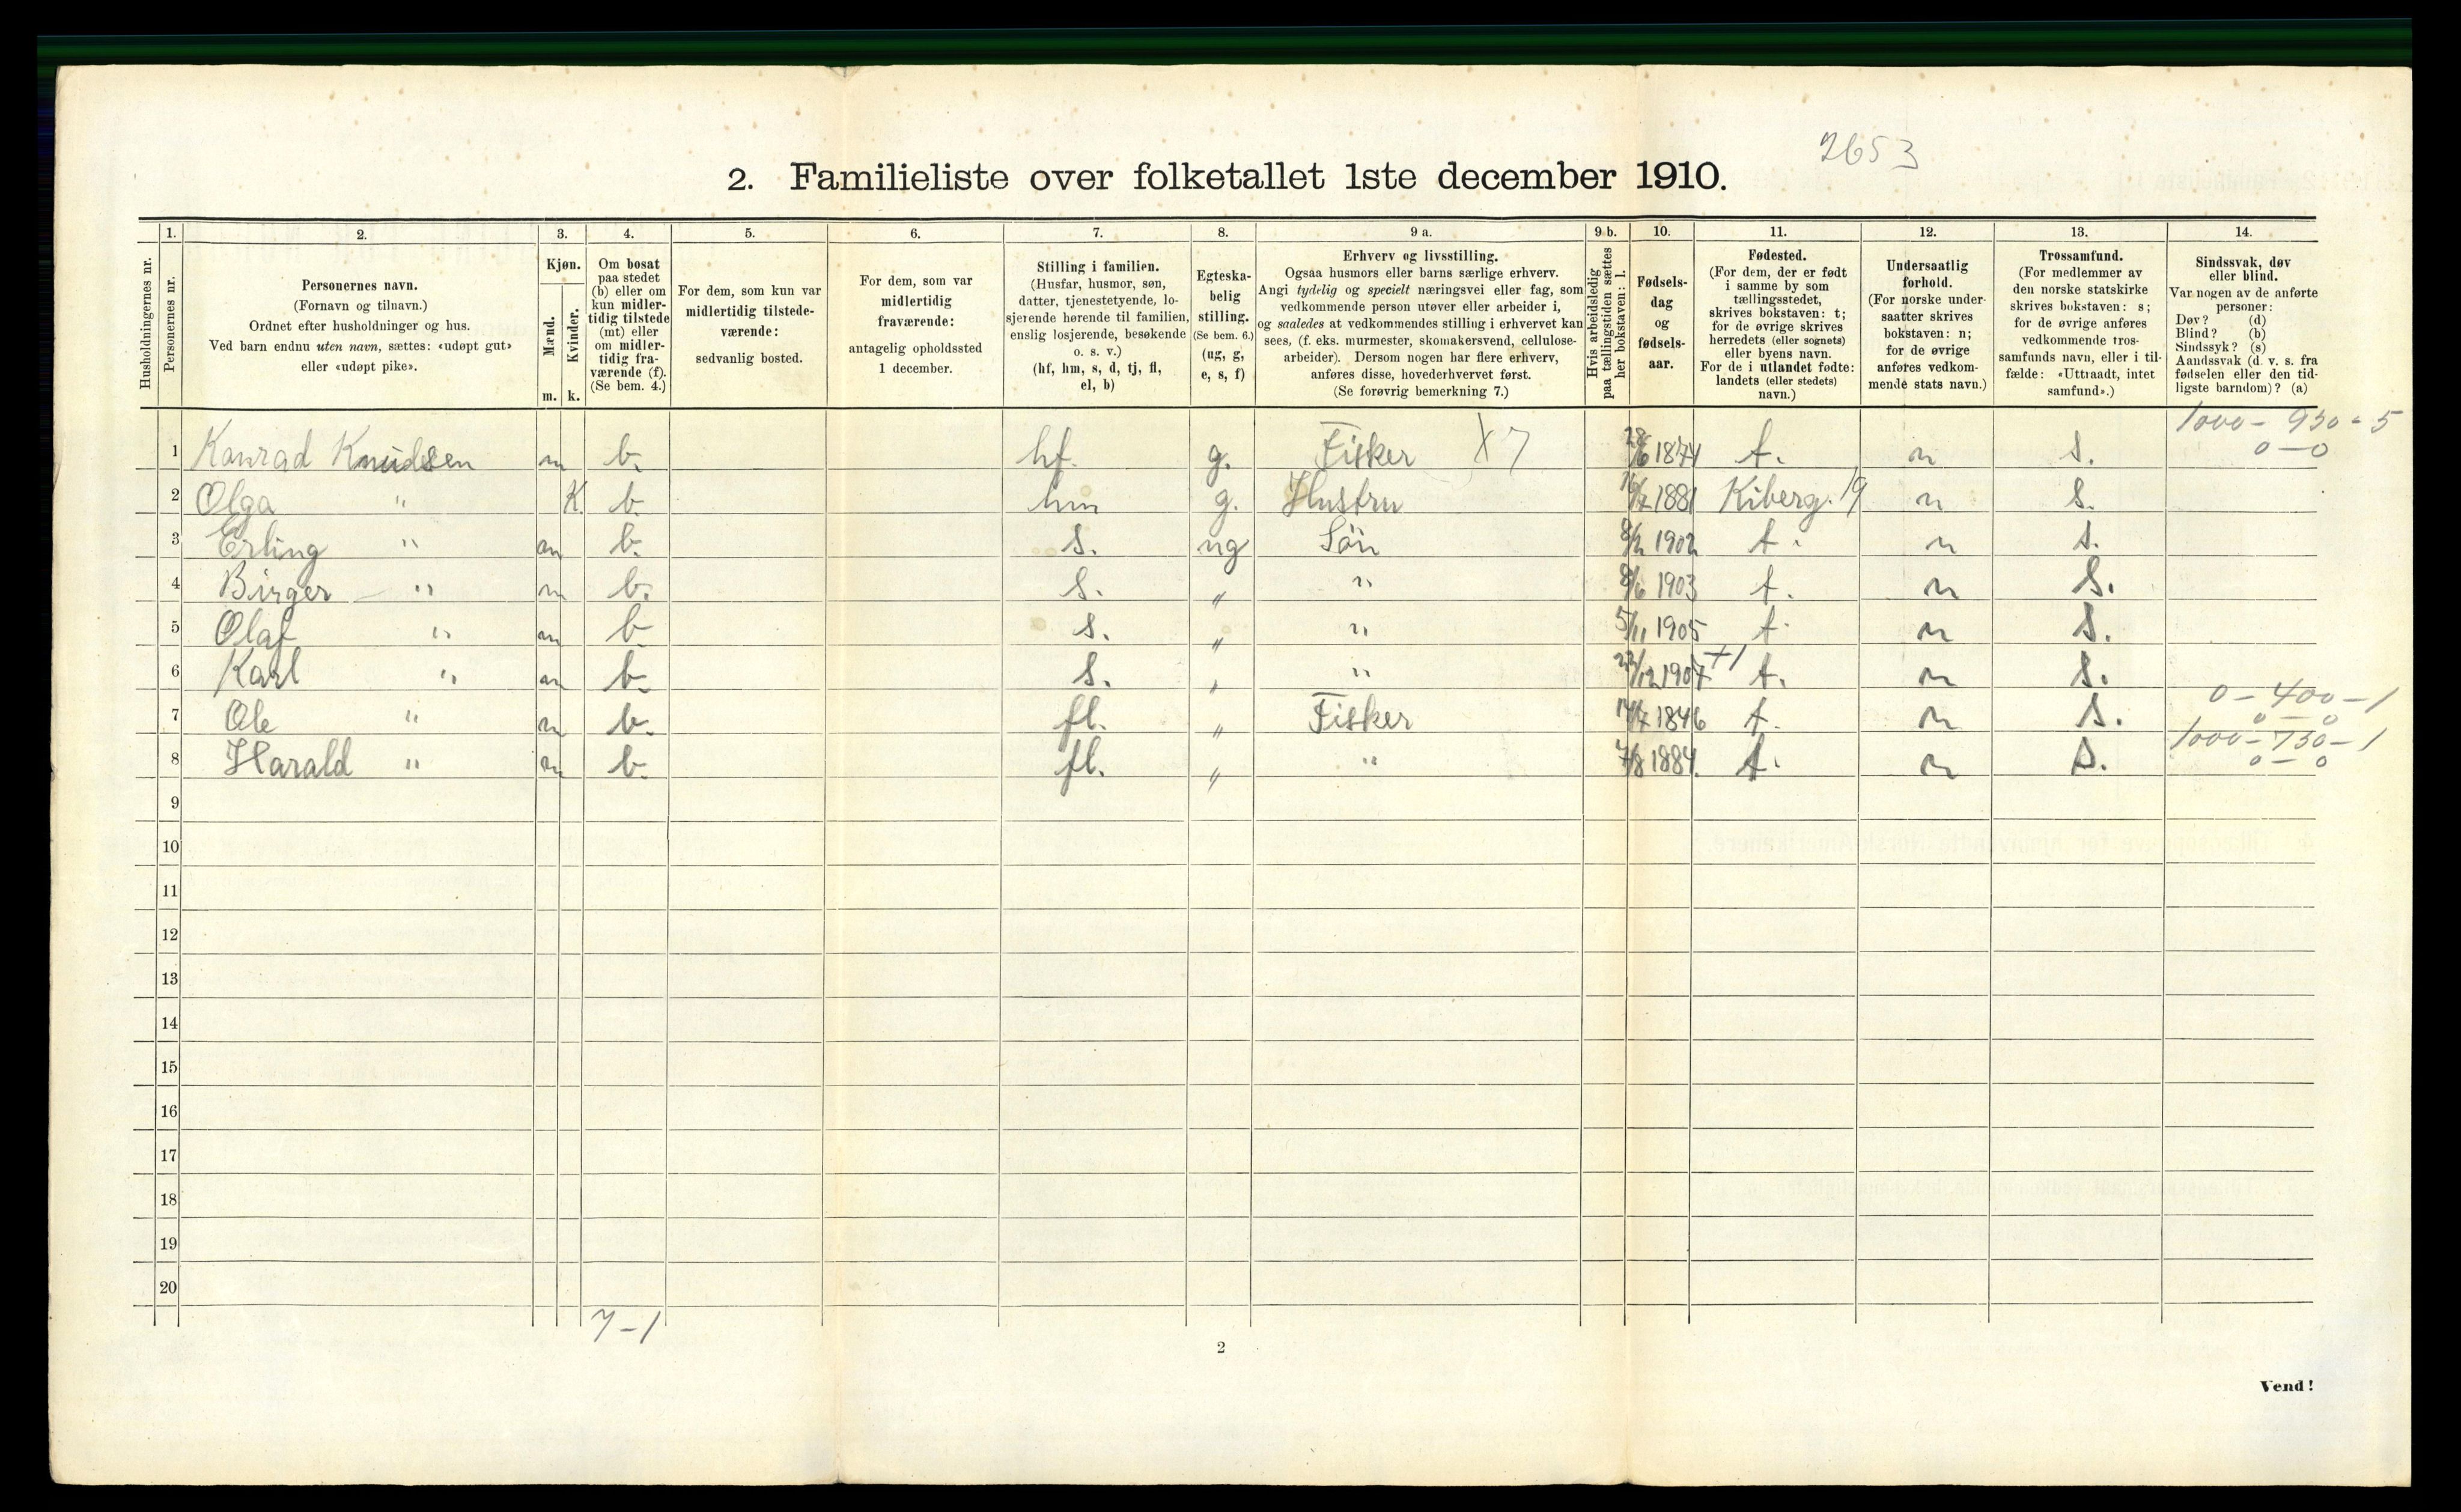 2653
2. Familieliste over folketallet 1ste december 1910.
Husholdningernes nr.
1.
Personernes nr.
2.
Personernes navn.
(Fornavn og tilnavn.)
Ordnet efter husholdninger og hus.
Ved barn endnu uten navn, sættes: «udøpt gut»
eller «udøpt pike».
3.
Kjøn.
Mænd.
Kvinder.
m. k.
4.
Om bosat
paa stedet
(b) eller om
kun midler-
tidig tilstede
(mt) eller
om midler-
tidig fra-
værende (f).
(Se bem. 4.)
5.
For dem, som kun var
midlertidig tilstede-
værende:
sedvanlig bosted.
6.
For dem, som var
midlertidig
fraværende:
antagelig opholdssted
1 december.
7.
Stilling i familien.
(Husfar, husmor, søn,
datter, tjenestetyende, lo-
sjerende hørende til familien,
enslig losjerende, besøkende
o. s. v.)
(hf, hm, s, d, tj, fl,
el, b)
8.
Egteska-
belig
stilling.
(Se bem. 6.)
(ug, g,
e, s, f)
9 a.
Erhverv og livsstilling.
Ogsaa husmors eller barns særlige erhverv.
Angi tydelig og specielt næringsvei eller fag, som
vedkommende person utøver eller arbeider i,
og saaledes at vedkommendes stilling i erhvervet kan
sees, (f. eks. murmester, skomakersvend, cellulose-
arbeider). Dersom nogen har flere erhverv,
anføres disse, hovederhvervet først.
(Se forøvrig bemerkning 7.)
9 b.
Hvis arbeidsledig
paa tællingstiden sættes
her bokstaven: l.
10.
Fødsels-
dag
og
fødsels-
aar.
11.
Fødested.
(For dem, der er født
i samme by som
tællingsstedet,
skrives bokstaven: t;
for de øvrige skrives
herredets (eller sognets)
eller byens navn.
For de i utlandet fødte:
landets (eller stedets)
navn.)
12.
Undersaatlig
forhold.
(For norske under-
saatter skrives
bokstaven: n;
for de øvrige
anføres vedkom-
mende stats navn.)
13.
Trossamfund.
(For medlemmer av
den norske statskirke
skrives bokstaven: s;
for de øvrige anføres
vedkommende tros-
samfunds navn, eller i til-
fælde: «Uttraadt, intet
samfund».)
14.
Sindssvak, døv
eller blind.
Var nogen av de anførte
personer:
Døv? (d)
Blind? (b)
Sindssyk? (s)
Aandssvak (d. v. s. fra
fødselen eller den tid-
ligste barndom)? (a)
1000 - 950 - 5
1 Konrad Knudsen m b. hf. g. Fisker X7 28/6 1874 t. n s. 0-0
2 Olga " K b. hm g. Hustru 1881 Kiberg. 19 n s.
3 Erling " m b. s. ug Søn 8/2 1902 t. n s.
4 Birger " m b. s. " " 8/6 1903 t. n s.
5 Olaf " m b. s. " " 5/11 1905 t. n s.
6 Karl " m b. s. " " 23/12 1907 +1 t. n s.
0-400-1
7 Ole " m b. fl. " Fisker 14/7 1846 t. n s. 0-0
1000-730-1
8 Harald " m b. fl. " " 7/8 1884. t. n s. 0-0
9
10
11
12
13
14
15
16
17
18
19
20
7-1
2
Vend!